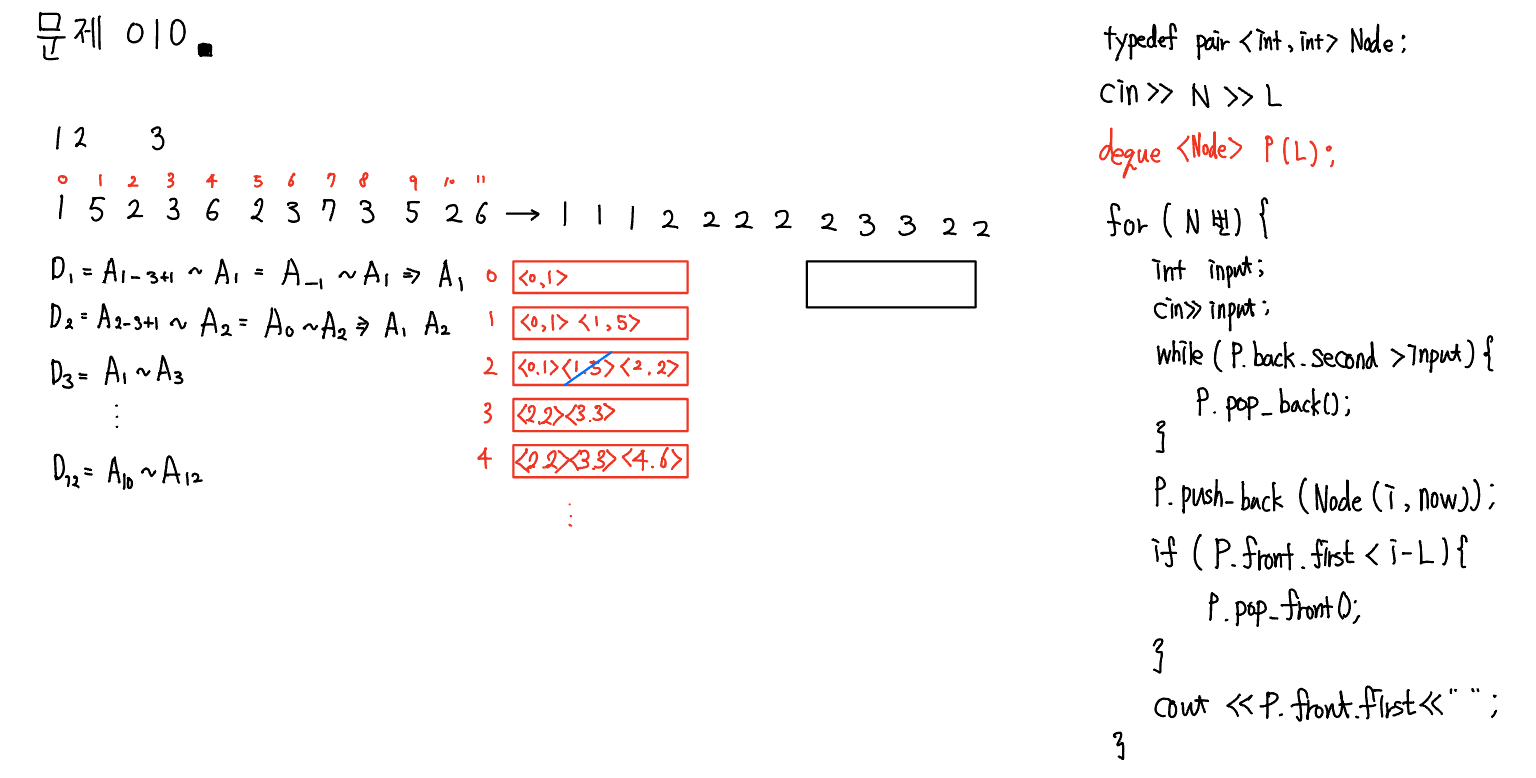 문제 010.
12 3
0 1 2 3 4 5 6 7 8 9 10 11
1 5 2 3 6 2 3 7 3 5 2 6 → 1 1 1 2 2 2 2 2 3 3 2 2
D₁ = A₁₋₃₊₁ ~ A₁ = A₋₁ ~ A₁ ⇒ A₁
D₂ = A₂₋₃₊₁ ~ A₂ = A₀ ~ A₂ ⇒ A₁ A₂
D₃ = A₁ ~ A₃
⋮
D₁₂ = A₁₀ ~ A₁₂
0 <0,1>
1 <0,1> <1,5>
2 <0.1><1.5><2.2>
3 <2.2><3.3>
4 <2.2><3.3><4.6>
⋮
typedef pair <int, int> Node;
cin >> N >> L
deque <Node> P(L);
for ( N 번) {
int input;
cin >> input;
while ( P.back.second > input) {
P. pop_back();
}
P. push_back (Node (i, now));
if ( P. front. first < i-L) {
P. pop_front();
}
cout << P. front.first << " ";
}